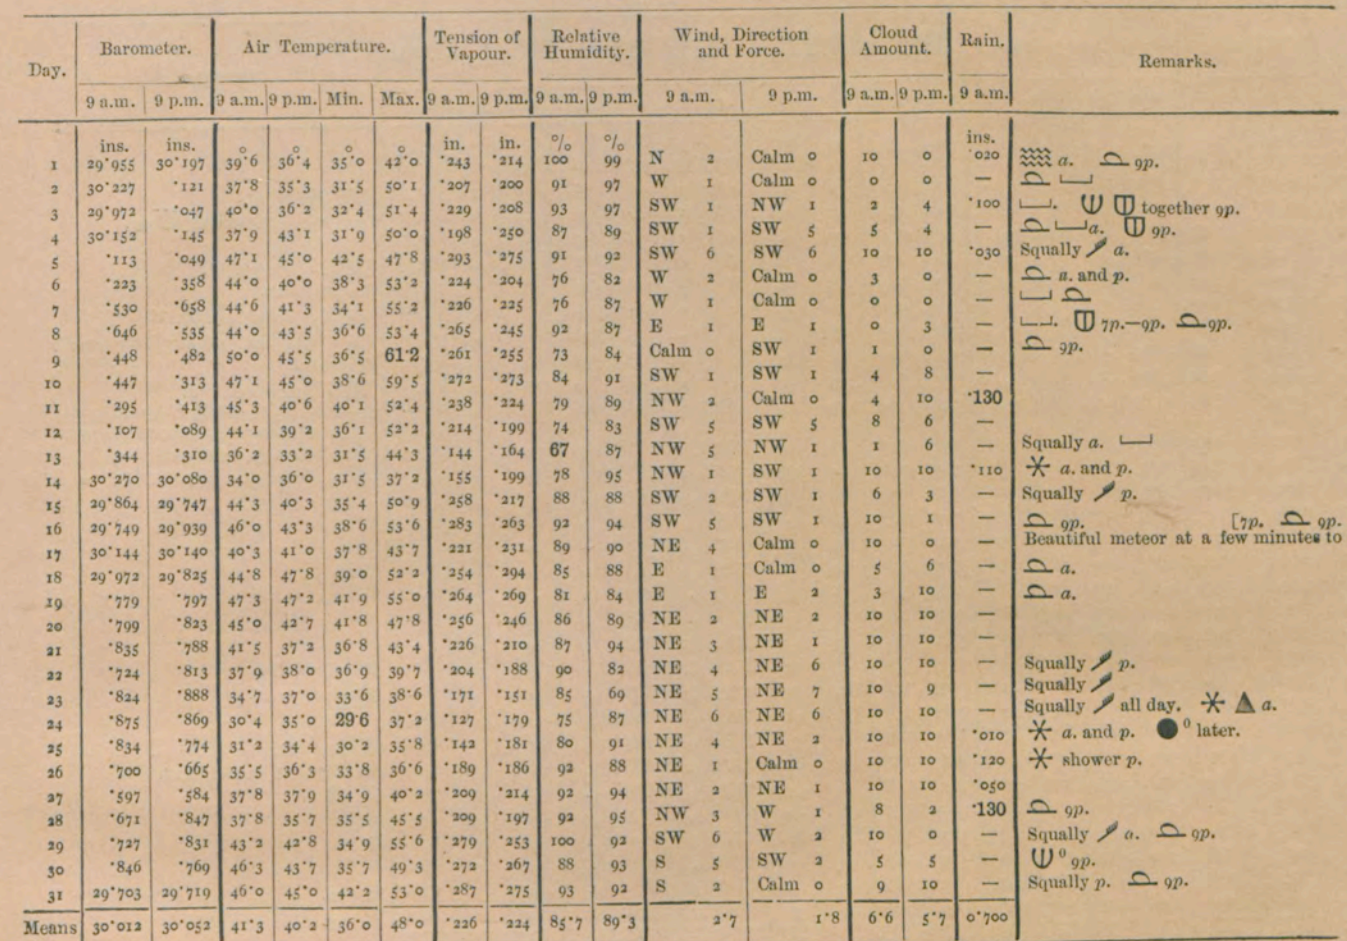 Day. Barometer. Air Temperature. Tension of Vapour. Relative Humidity. Wind, Direction and Force. Cloud Amount. Rain. Remarks.
9 a.m. 9 p.m. 9 a.m. 9 p.m. Min. Max. 9 a.m. 9 p.m. 9 a.m. 9 p.m. 9 a.m. 9 p.m. 9 a.m. 9 p.m. 9 a.m.
ins. ins. o o o o in. in. % % ins.
1 29·955 30·197 39·6 36·4 35·0 42·0 ·243 ·214 100 99 N 2 Calm 0 10 0 ·020 a. 9p.
2 30·227 ·121 37·8 35·3 31·5 50·1 ·207 ·200 91 97 W 1 Calm 0 0 0 —
3 29·972 ·047 40·0 36·2 32·4 51·4 ·229 ·208 93 97 SW 1 NW 1 2 4 ·100 together 9p.
4 30·152 ·145 37·9 43·1 31·9 50·0 ·198 ·250 87 89 SW 1 SW 5 5 4 — a. 9p.
5 ·113 ·049 47·1 45·0 42·5 47·8 ·293 ·275 91 92 SW 6 SW 6 10 10 ·030 Squally a.
6 ·223 ·358 44·0 40·0 38·3 53·2 ·224 ·204 76 82 W 2 Calm 0 3 0 — a. and p.
7 ·530 ·658 44·6 41·3 34·1 55·2 ·226 ·225 76 87 W 1 Calm 0 0 0 —
8 ·646 ·535 44·0 43·5 36·6 53·4 ·265 ·245 92 87 E 1 E 1 0 3 — 7p.—9p. 9p.
9 ·448 ·482 50·0 45·5 36·5 61·2 ·261 ·255 73 84 Calm 0 SW 1 1 0 — 9p.
10 ·447 ·313 47·1 45·0 38·6 59·5 ·272 ·273 84 91 SW 1 SW 1 4 8 —
11 ·295 ·413 45·3 40·6 40·1 52·4 ·238 ·224 79 89 NW 2 Calm 0 4 10 ·130
12 ·107 ·089 44·1 39·2 36·1 52·2 ·214 ·199 74 83 SW 5 SW 5 8 6 —
13 ·344 ·310 36·2 33·2 31·5 44·3 ·144 ·164 67 87 NW 5 NW 1 1 6 — Squally a.
14 30·270 30·080 34·0 36·0 31·5 37·2 ·155 ·199 78 95 NW 1 SW 1 10 10 ·110 a. and p.
15 29·864 29·747 44·3 40·3 35·4 50·9 ·258 ·217 88 88 SW 2 SW 1 6 3 — Squally p.
16 29·749 29·939 46·0 43·3 38·6 53·6 ·283 ·263 92 94 SW 5 SW 1 10 1 — 9p. [7p. 9p.
17 30·144 30·140 40·3 41·0 37·8 43·7 ·221 ·231 89 90 NE 4 Calm 0 10 0 — Beautiful meteor at a few minutes to
18 29·972 29·825 44·8 47·8 39·0 52·2 ·254 ·294 85 88 E 1 Calm 0 5 6 — a.
19 ·779 ·797 47·3 47·2 41·9 55·0 ·264 ·269 81 84 E 1 E 2 3 10 — a.
20 ·799 ·823 45·0 42·7 41·8 47·8 ·256 ·246 86 89 NE 2 NE 2 10 10 —
21 ·835 ·788 41·5 37·2 36·8 43·4 ·226 ·210 87 94 NE 3 NE 1 10 10 —
22 ·724 ·813 37·9 38·0 36·9 39·7 ·204 ·188 90 82 NE 4 NE 6 10 10 — Squally p.
23 ·824 ·888 34·7 37·0 33·6 38·6 ·171 ·151 85 69 NE 5 NE 7 10 9 — Squally
24 ·875 ·869 30·4 35·0 29·6 37·2 ·127 ·179 75 87 NE 6 NE 6 10 10 — Squally all day. a.
25 ·834 ·774 31·2 34·4 30·2 35·8 ·142 ·181 80 91 NE 4 NE 2 10 10 ·010 a. and p. 0 later.
26 ·700 ·665 35·5 36·3 33·8 36·6 ·189 ·186 92 88 NE 1 Calm 0 10 10 ·120 shower p.
27 ·597 ·584 37·8 37·9 34·9 40·2 ·209 ·214 92 94 NE 2 NE 1 10 10 ·050
28 ·671 ·847 37·8 35·7 35·5 45·5 ·209 ·197 92 95 NW 3 W 1 8 2 ·130 9p.
29 ·727 ·831 43·2 42·8 34·9 55·6 ·279 ·253 100 92 SW 6 W 2 10 0 — Squally a. 9p.
30 ·846 ·769 46·3 43·7 35·7 49·3 ·272 ·267 88 93 S 5 SW 2 5 5 — 0 9p.
31 29·703 29·719 46·0 45·0 42·2 53·0 ·287 ·275 93 92 S 2 Calm 0 9 10 — Squally p. 9p.
Means 30·012 30·052 41·3 40·2 36·0 48·0 ·226 ·224 85·7 89·3 2·7 1·8 6·6 5·7 0·700